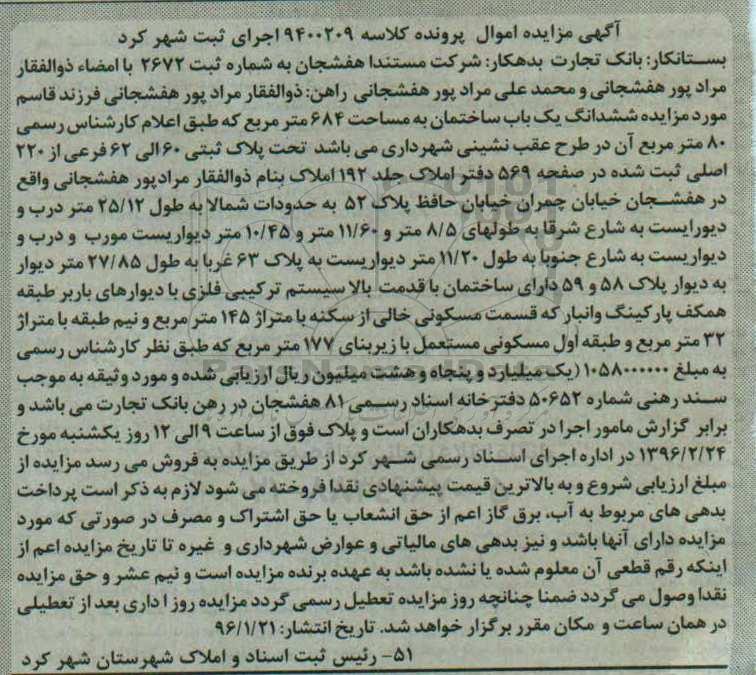 آگهی مزایده اموال پرونده کلاسه ۹۴۰۰۲۰۹ اجرای ثبت شهر کرد
بستانکار: بانک تجارت بدهکار: شرکت مستندا هفشجان به شماره ثبت ۲۶۷۲ با امضاء ذوالفقار
مراد پور هفشجانی و محمد علی مراد پور هفشجانی راهن: ذوالفقار مراد پور هفشجانی فرزند قاسم
مورد مزایده ششدانگ یک باب ساختمان به مساحت ۶۸۴ متر مربع که طبق اعلام کارشناس رسمی
۸۰ متر مربع آن در طرح عقب نشینی شهرداری می باشد تحت پلاک ثبتی ۶۰ الی ۶۲ فرعی از ۲۲۰
اصلی ثبت شده در صفحه ۵۶۹ دفتر املاک جلد ۱۹۲ املاک بنام ذوالفقار مرادپور هفشجانی واقع
در هفشجان خیابان چمران خیابان حافظ پلاک ۵۲ به حدودات شمالا به طول ۲۵/۱۲ متر درب و
دیورایست به شارع شرقا به طولهای ۸/۵ متر و ۱۱/۶۰ متر و ۱۰/۴۵ متر دیواریست مورب و درب و
دیواریست به شارع جنوبا به طول ۱۱/۲۰ متر دیواریست به پلاک ۶۳ غربا به طول ۲۷/۸۵ متر دیوار
به دیوار پلاک ۵۸ و ۵۹ دارای ساختمان با قدمت بالا سیستم ترکیبی فلزی با دیوارهای باربر طبقه
همکف پارکینگ وانبار که قسمت مسکونی خالی از سکنه با متراژ ۱۴۵ متر مربع و نیم طبقه با متراژ
۳۲ متر مربع و طبقه اول مسکونی مستعمل با زیربنای ۱۷۷ متر مربع که طبق نظر کارشناس رسمی
به مبلغ ۱۰۵۸۰۰۰۰۰۰ (یک میلیارد و پنجاه و هشت میلیون ریال ارزیابی شده و مورد وثیقه به موجب
سند رهنی شماره ۵۰۶۵۲ دفترخانه اسناد رسمی ۸۱ هفشجان در رهن بانک تجارت می باشد و
برابر گزارش مامور اجرا در تصرف بدهکاران است و پلاک فوق از ساعت ۹ الی ۱۲ روز یکشنبه مورخ
۱۳۹۶/۲/۲۴ در اداره اجرای اسناد رسمی شهر کرد از طریق مزایده به فروش می رسد مزایده از
مبلغ ارزیابی شروع و به بالاترین قیمت پیشنهادی نقدا فروخته می شود لازم به ذکر است پرداخت
بدهی های مربوط به آب، برق گاز اعم از حق انشعاب یا حق اشتراک و مصرف در صورتی که مورد
مزایده دارای آنها باشد و نیز بدهی های مالیاتی و عوارض شهرداری و غیره تا تاریخ مزایده اعم از
اینکه رقم قطعی آن معلوم شده یا نشده باشد به عهده برنده مزایده است و نیم عشر و حق مزایده
نقدا وصول می گردد ضمنا چنانچه روز مزایده تعطیل رسمی گردد مزایده روز ا داری بعد از تعطیلی
در همان ساعت و مکان مقرر برگزار خواهد شد. تاریخ انتشار: ۹۶/۱/۲۱
۵۱- رئیس ثبت اسناد و املاک شهرستان شهر کرد